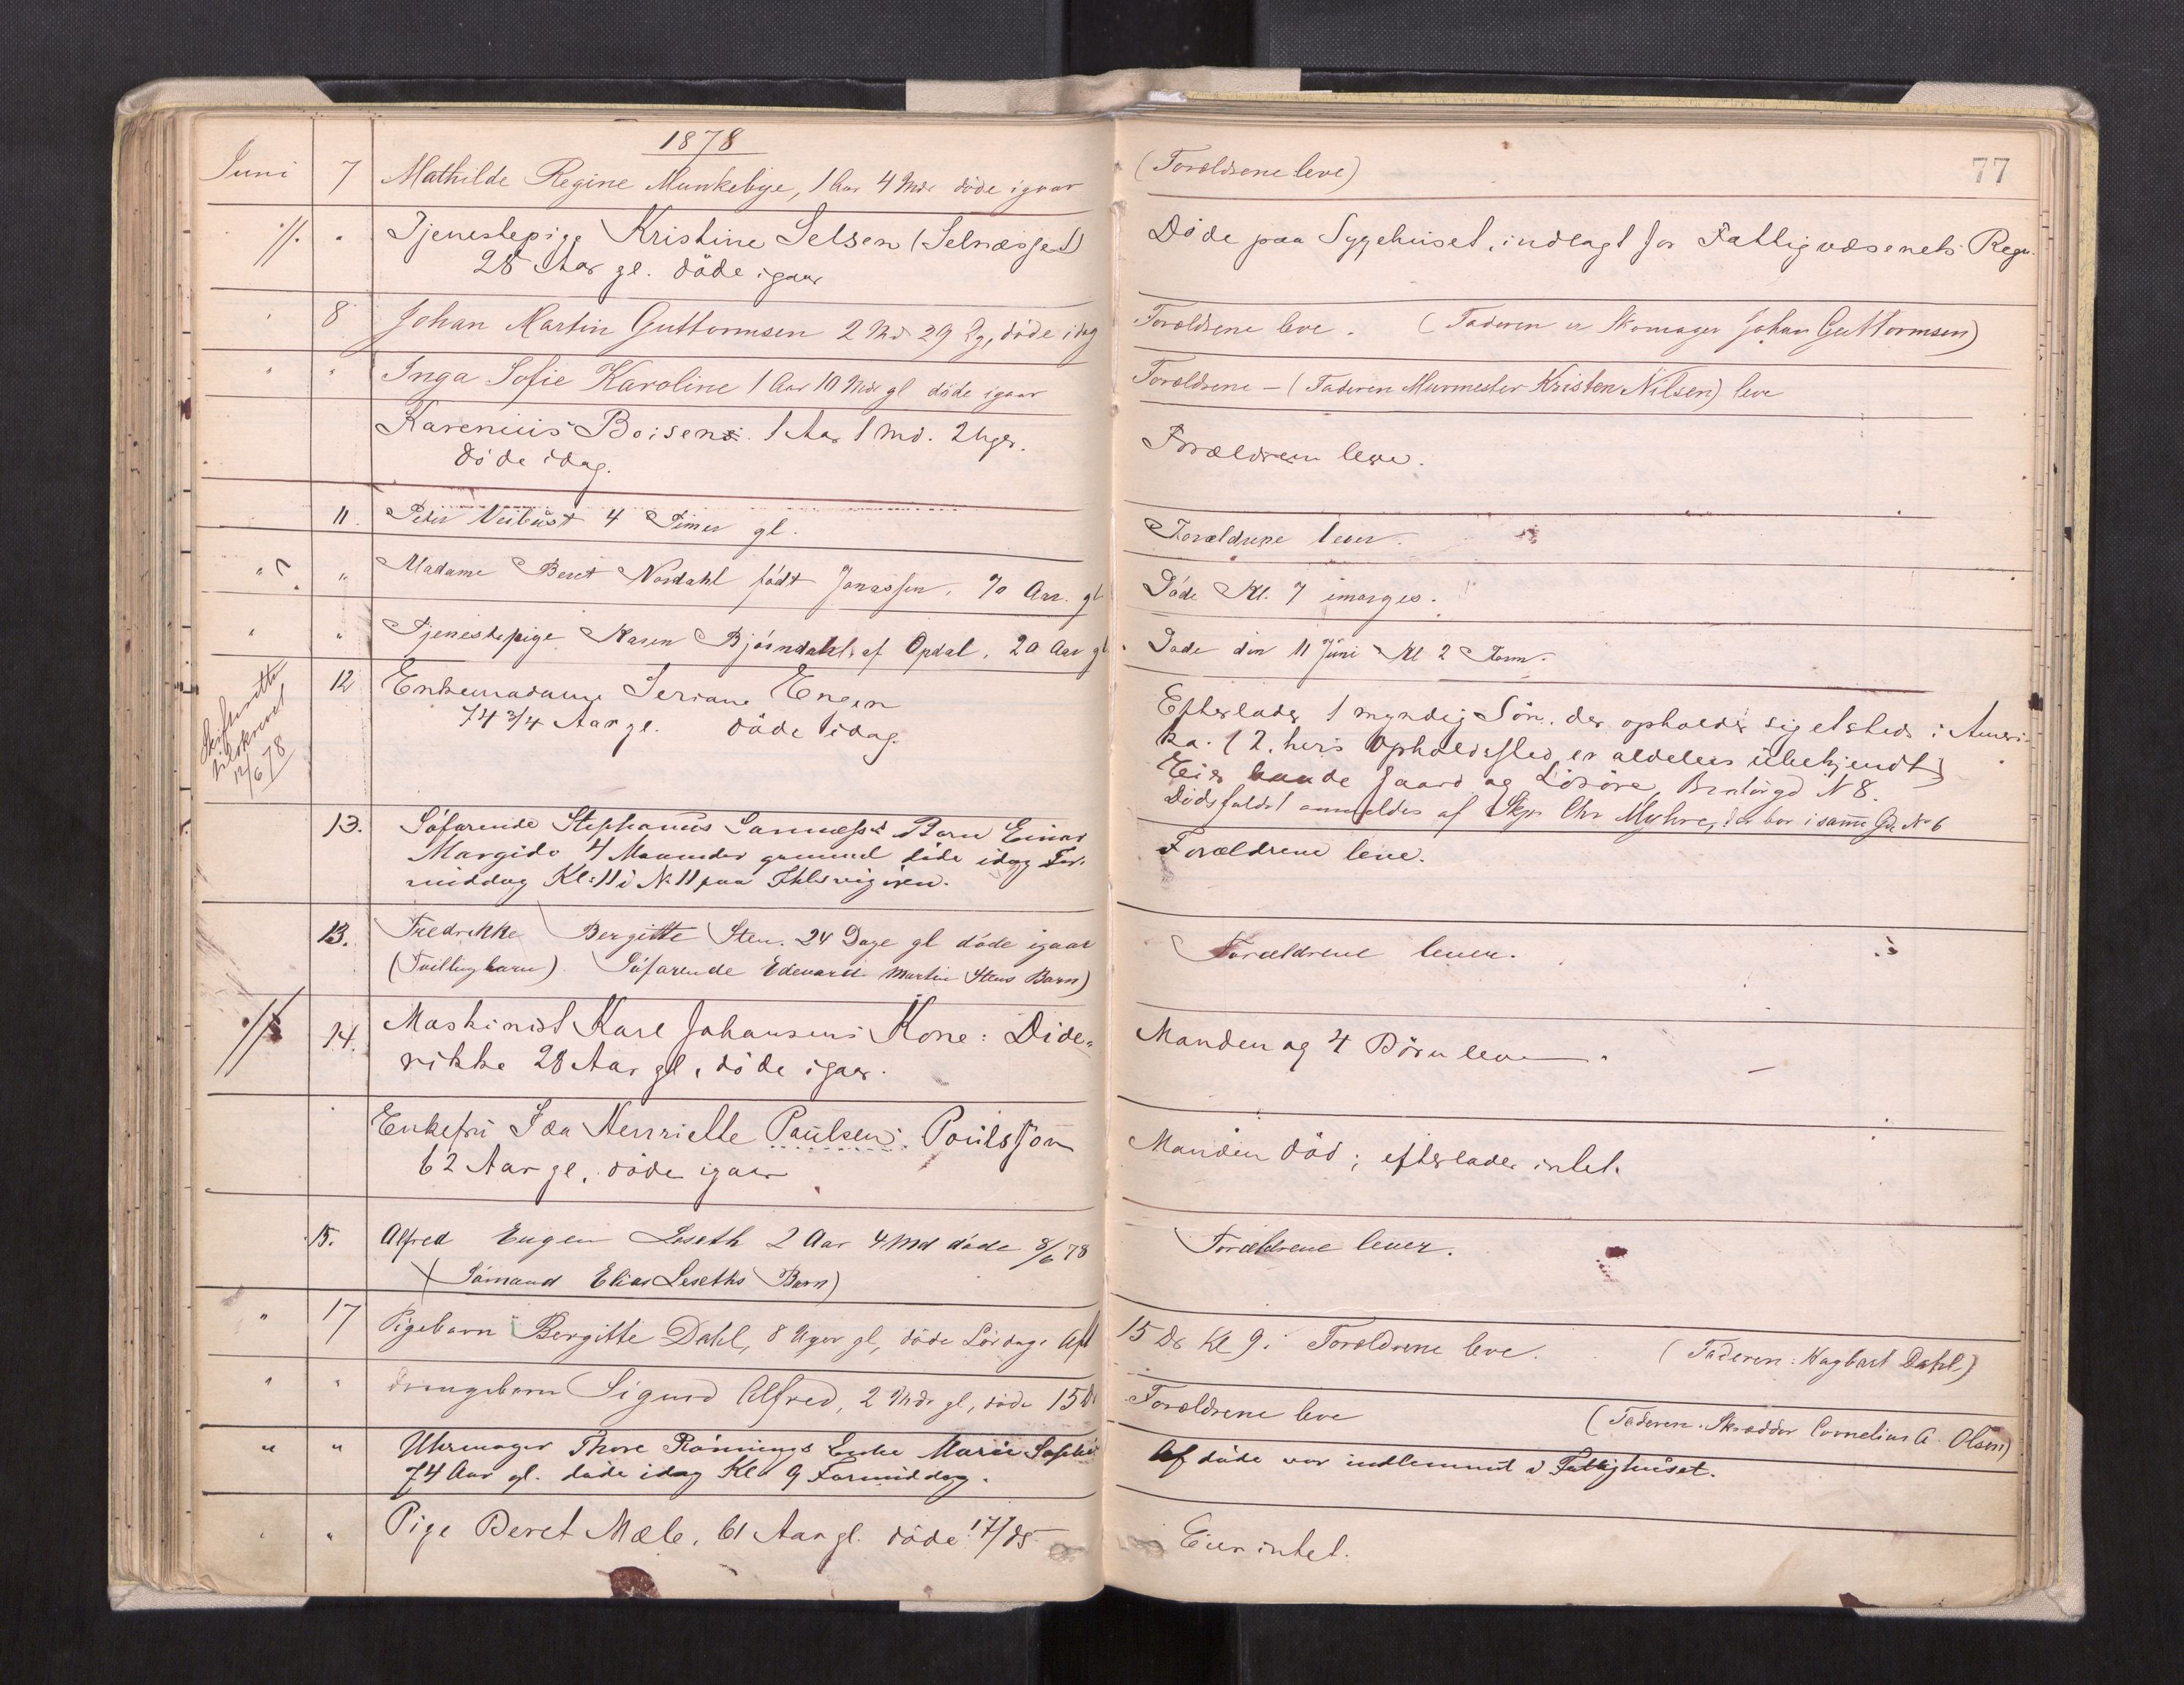 1878
77
Juni 7 Mathilde Regine Munkebye, 1 Aar 4 Mdr döde igaar
(Forældrene leve)
Tjenestepige Kristine Selsen (Selnæsset)
28 Aar gl. döde igaar
Döde paa Sygehuset, indlagt for Fattigvæsenets Regn.
8 Johan Martin Guttormsen 2 Md 29 Dg, döde idag
Forældrene leve. (Faderen er Skomager Johan Guttormsen)
" " Inga Sofie Karoline 1 Aar 10 Mdr gl döde igaar
Forældrene - (Faderen Murmester Kristen Nilsen) leve
Karenius Boisen 1 Aar 1 Md. 2 Uger.
döde idag.
Forældrene leve.
11. Peter 4 Timer gl.
Forældrene lever.
" " Madame Beret Nordahl födt Jonassen, 70 Aar. gl.
Döde Kl. 7 imorges.
" " Tjenestepige Karen Bjørndahl af Opdal, 20 Aar gl.
Döde den 11 Juni Kl 2 Form.
12/6 78
12 Enkemadame Engen
74 3/4 Aar gl. döde idag.
Efterlader 1 myndig Sön, der opholder sig etsteds i Ameri-
ka. (?, hvis Opholdssted er aldeles ubekjendt)
Eier baade Gaard og Lösöre, N 8.
Dödsfaldet anmeldes af Skpr Chr Myhre, der bor i samme Gd. No 6
13. Söfarende Stephanus Barn Einar
Margido 4 Maaneder gammel döde idag For-
middag Kl: 11 i N: 11 paa Ihlevigören.
Forældrene leve.
13. Fredrikke Bergitte Sten. 24 Dage gl döde igaar
(Tvillingbarn) Söfarende Edevard Martin Stens Barn)
Forældrene lever.
14. Maskinist Karl Johansens Kone: Dide-
rikke 28 Aar gl, döde igaar.
Manden og 4 Börn lever.
Enkefru Ida Henriette Paulsen. Poulsson
62 Aar gl, döde igaar
Manden död; efterlader intet.
15. Alfred Eugen Leseth 2 Aar 4 Md döde 8/6 78
(Sömand Elias Leseths Barn)
Forældrene lever.
" 17 Pigebarn Bergitte Dahl, 8 Uger gl, döde Lördags Aft
15 Ds Kl 9. Forældrene leve. (Faderen: Hagbart Dahl)
" " Drengebarn Sigurd Alfred, 2 Mdr gl, döde 15 Ds
Forældrene leve (Faderen. Skrædder Cornelius A. Olsen)
" " Uhrmager Thore Rönnings Enke Marie Sophie
74 Aar gl. döde idag Kl. 9 Formiddag.
Afdöde var indlemmet i Fattighuset.
" " Pige Beret Mæle, 61 Aar gl. döde 17/ds
Eier intet.